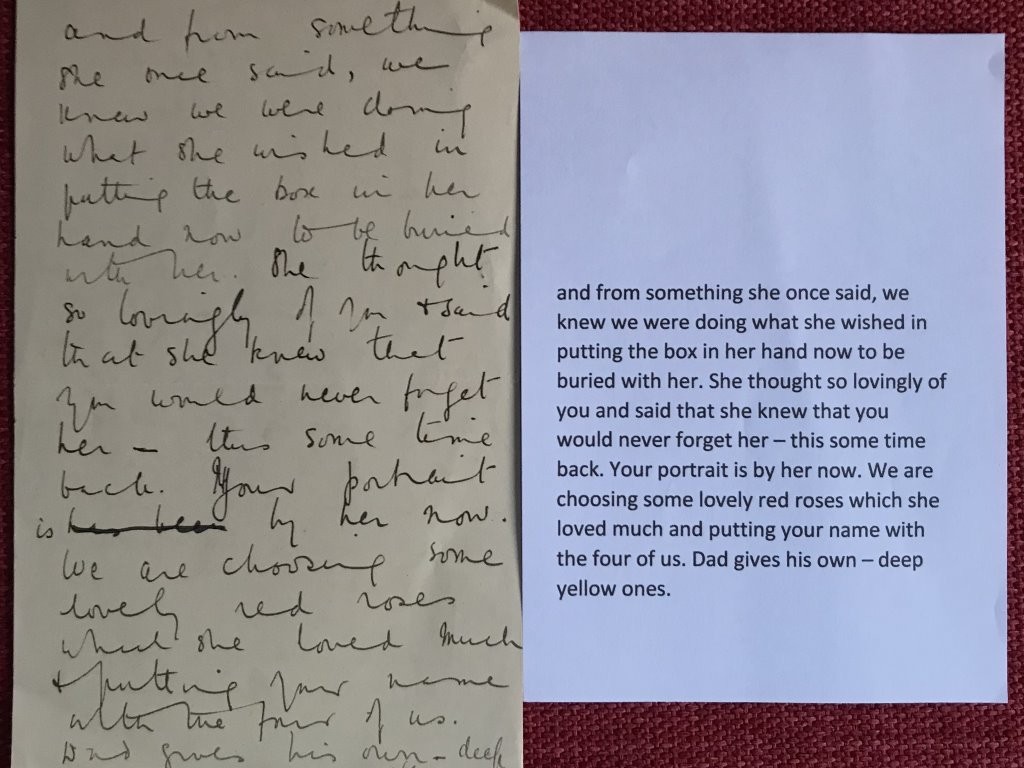 and from something
she once said, we
knew we were doing
what she wished in
putting the box in her
hand now to be buried
with her. She thought
so lovingly of you + said
that she knew that
you would never forget
her – this some time
back. Your portrait
is has been by her now.
We are choosing some
lovely red roses
which she loved much
+ putting your name
with the four of us.
Dad gives his own – deep
and from something she once said, we
knew we were doing what she wished in
putting the box in her hand now to be
buried with her. She thought so lovingly of
you and said that she knew that you
would never forget her – this some time
back. Your portrait is by her now. We are
choosing some lovely red roses which she
loved much and putting your name with
the four of us. Dad gives his own – deep
yellow ones.